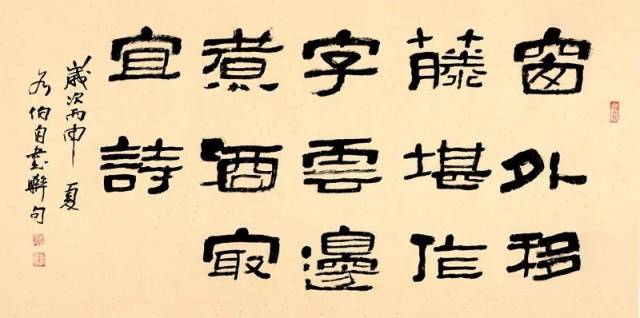 窗外移
藤堪作
字雲邊
煮酒冣
宜詩
歲次丙申夏
伯自書聯句